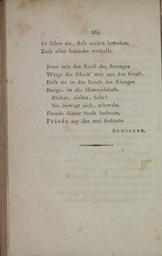 264
So lehre sie, daſs nichts bestehet,
Daſs alles Irdische verhallt.
Jetzo mit der Kraft des Stranges
Wiegt die Glock' mir aus der Gruft,
Daſs sie in das Reich des Klanges
Steige, in die Himmelsluft.
Ziehet, ziehet, hebt!
Sie bewegt sich, schwebt.
Freude dieser Stadt bedeute,
Friede sey ihr erst Geläute.
SCHILLER.